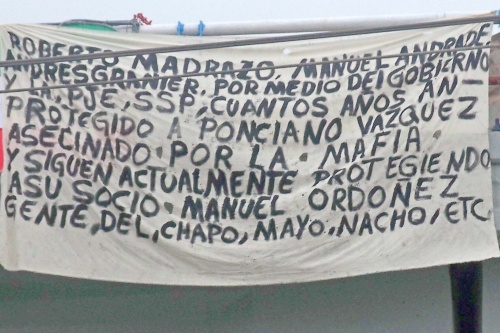 ROBERTO MADRAZO, MANUEL ANDRADE
ANDRES GRANIER, POR MEDIO DEL GOBIERNO
LA, PJE, SSP, CUANTOS AÑOS, AN-
PROTEGIDO A PONCIANO VAZQUEZ
ASECINADO POR LA MAFIA
Y SIGUEN ACTUALMENTE PROTEGIENDO
ASU SOCIO MANUEL ORDOÑEZ
GENTE, DEL, CHAPO, MAYO, NACHO, ETC